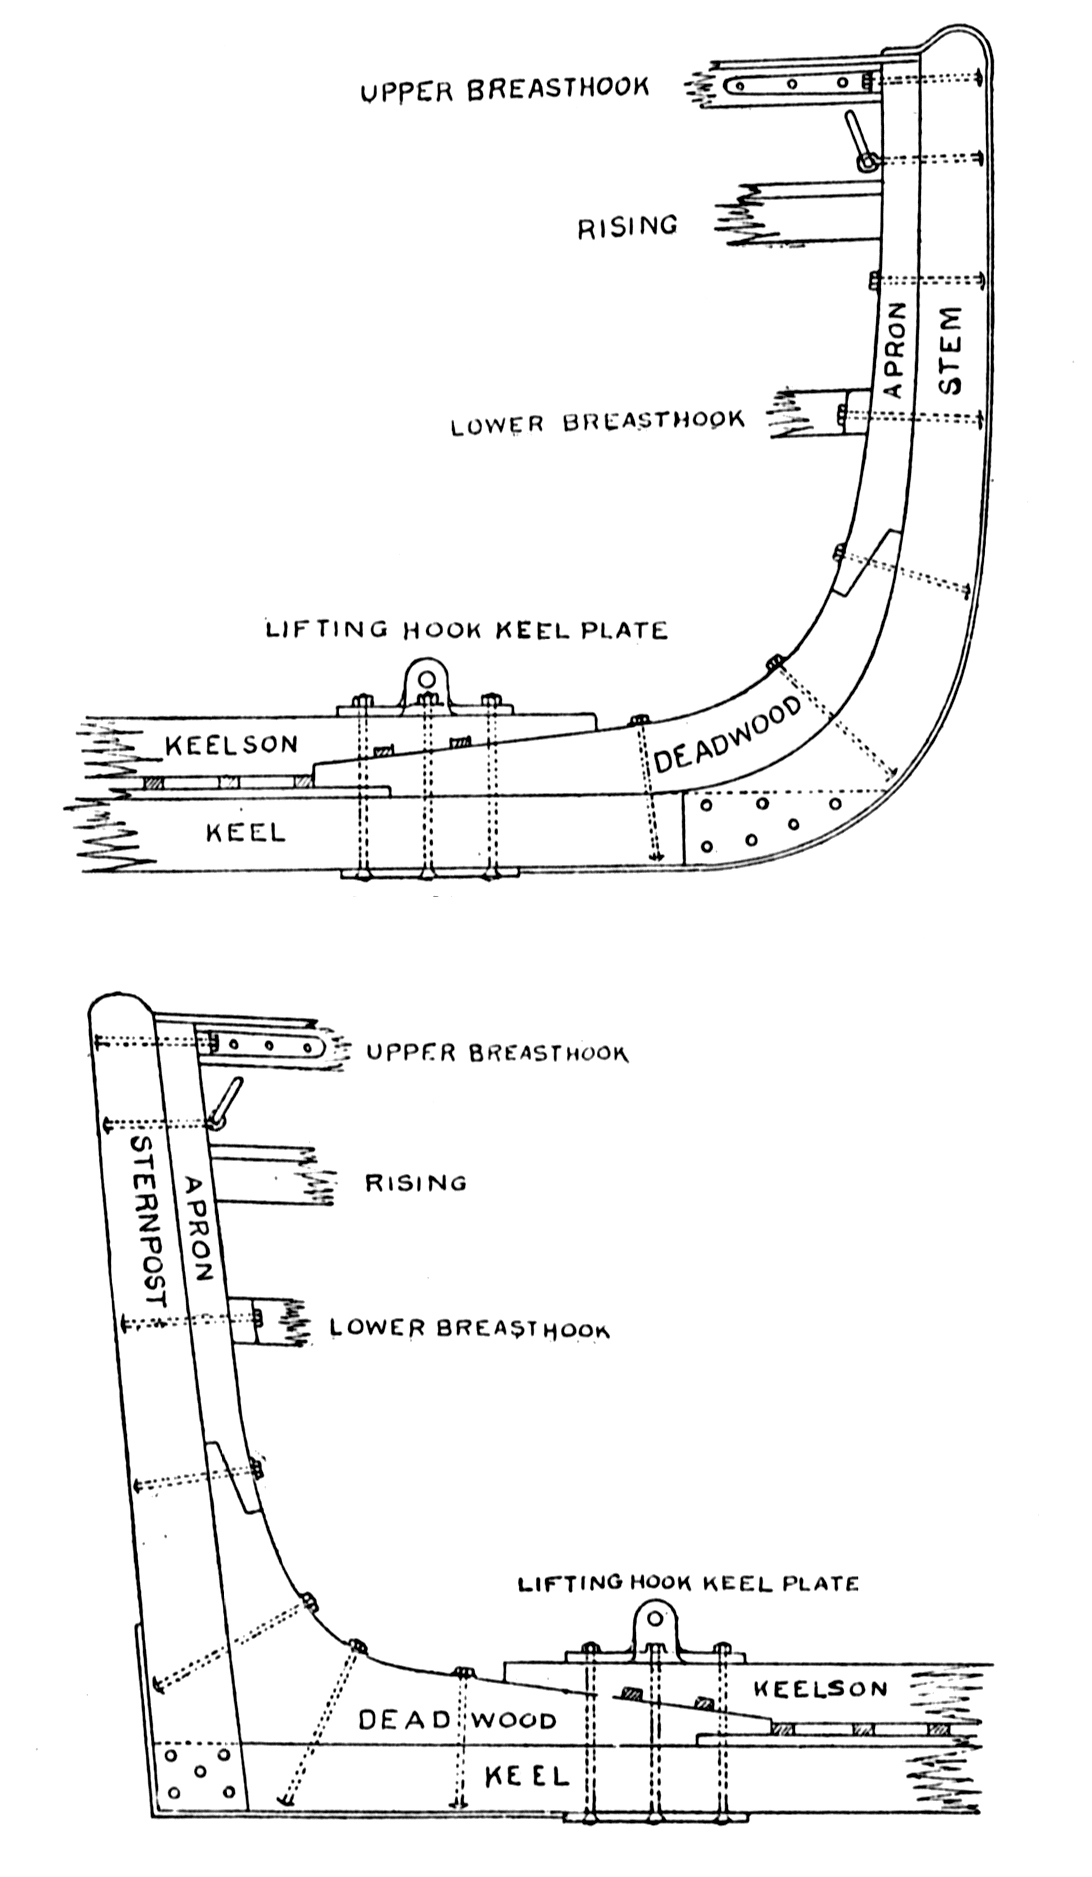 UPPER BREASTHOOK
RISING
APRON
STEM
LOWER BREASTHOOK
LIFTING HOOK KEEL PLATE
DEADWOOD
KEELSON
KEEL
UPPER BREASTHOOK
STERNPOST
APRON
RISING
LOWER BREASTHOOK
LIFTING HOOK KEEL PLATE
KEELSON
DEAD WOOD
KEEL